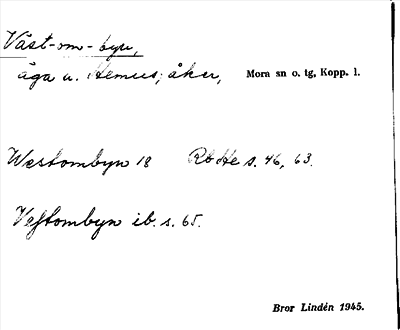 Väst-om-byn,
äga u. Hemus; åker, Mora sn o. tg, Kopp. l.
Westombyn 18 Rb He s. 46, 63.
Vestombyn ib. s. 65.
Bror Lindén 1945.